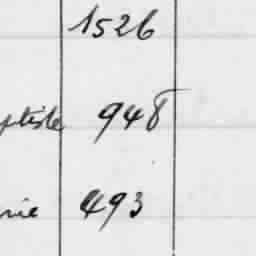 1526
ptiste 948
rie 493